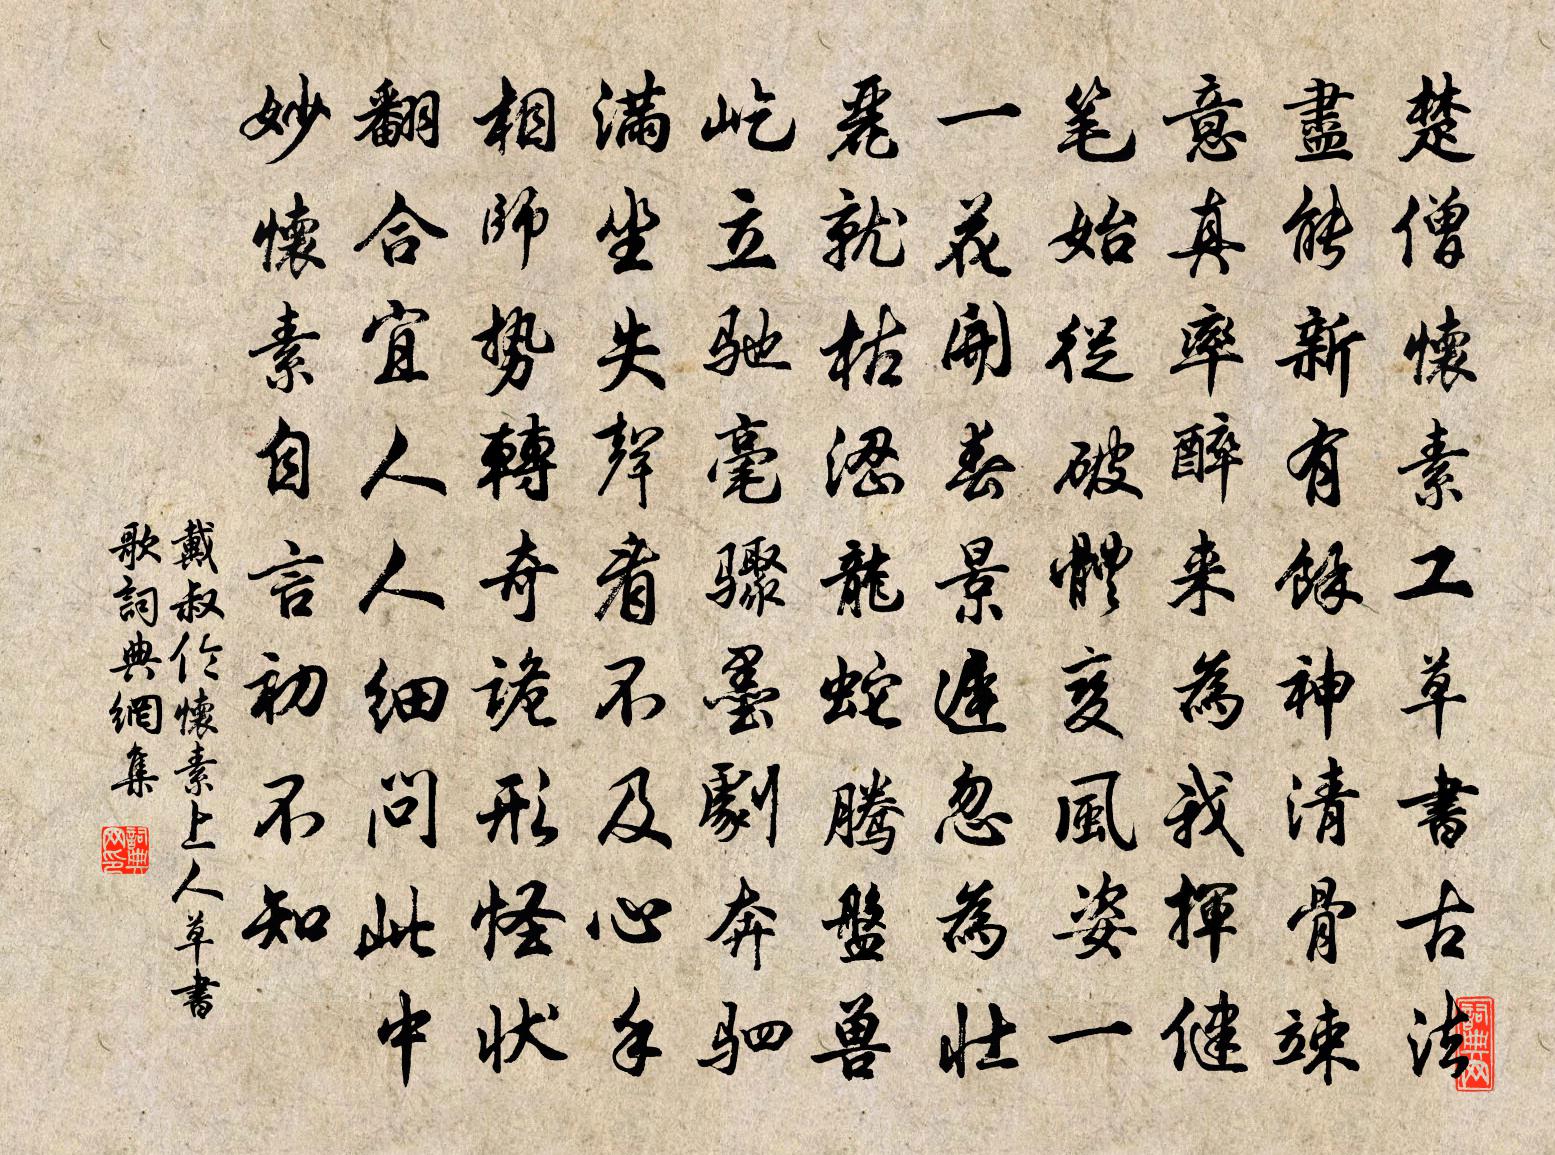 楚僧懷素工草書古法
盡能新有餘神清骨竦
意真率醉来為我揮健
笔始從破體变風姿一
一花開春景遲忽為壮
麗就枯澀龍蛇騰盤兽
屹立驰毫骤墨劇奔驷
满坐失聲看不及心手
相師势轉奇詭形怪状
翻合宜人人細問此中
妙懷素自言初不知
戴叔伦懷素上人草書
歌詞典網集
詞典网印
詞典网